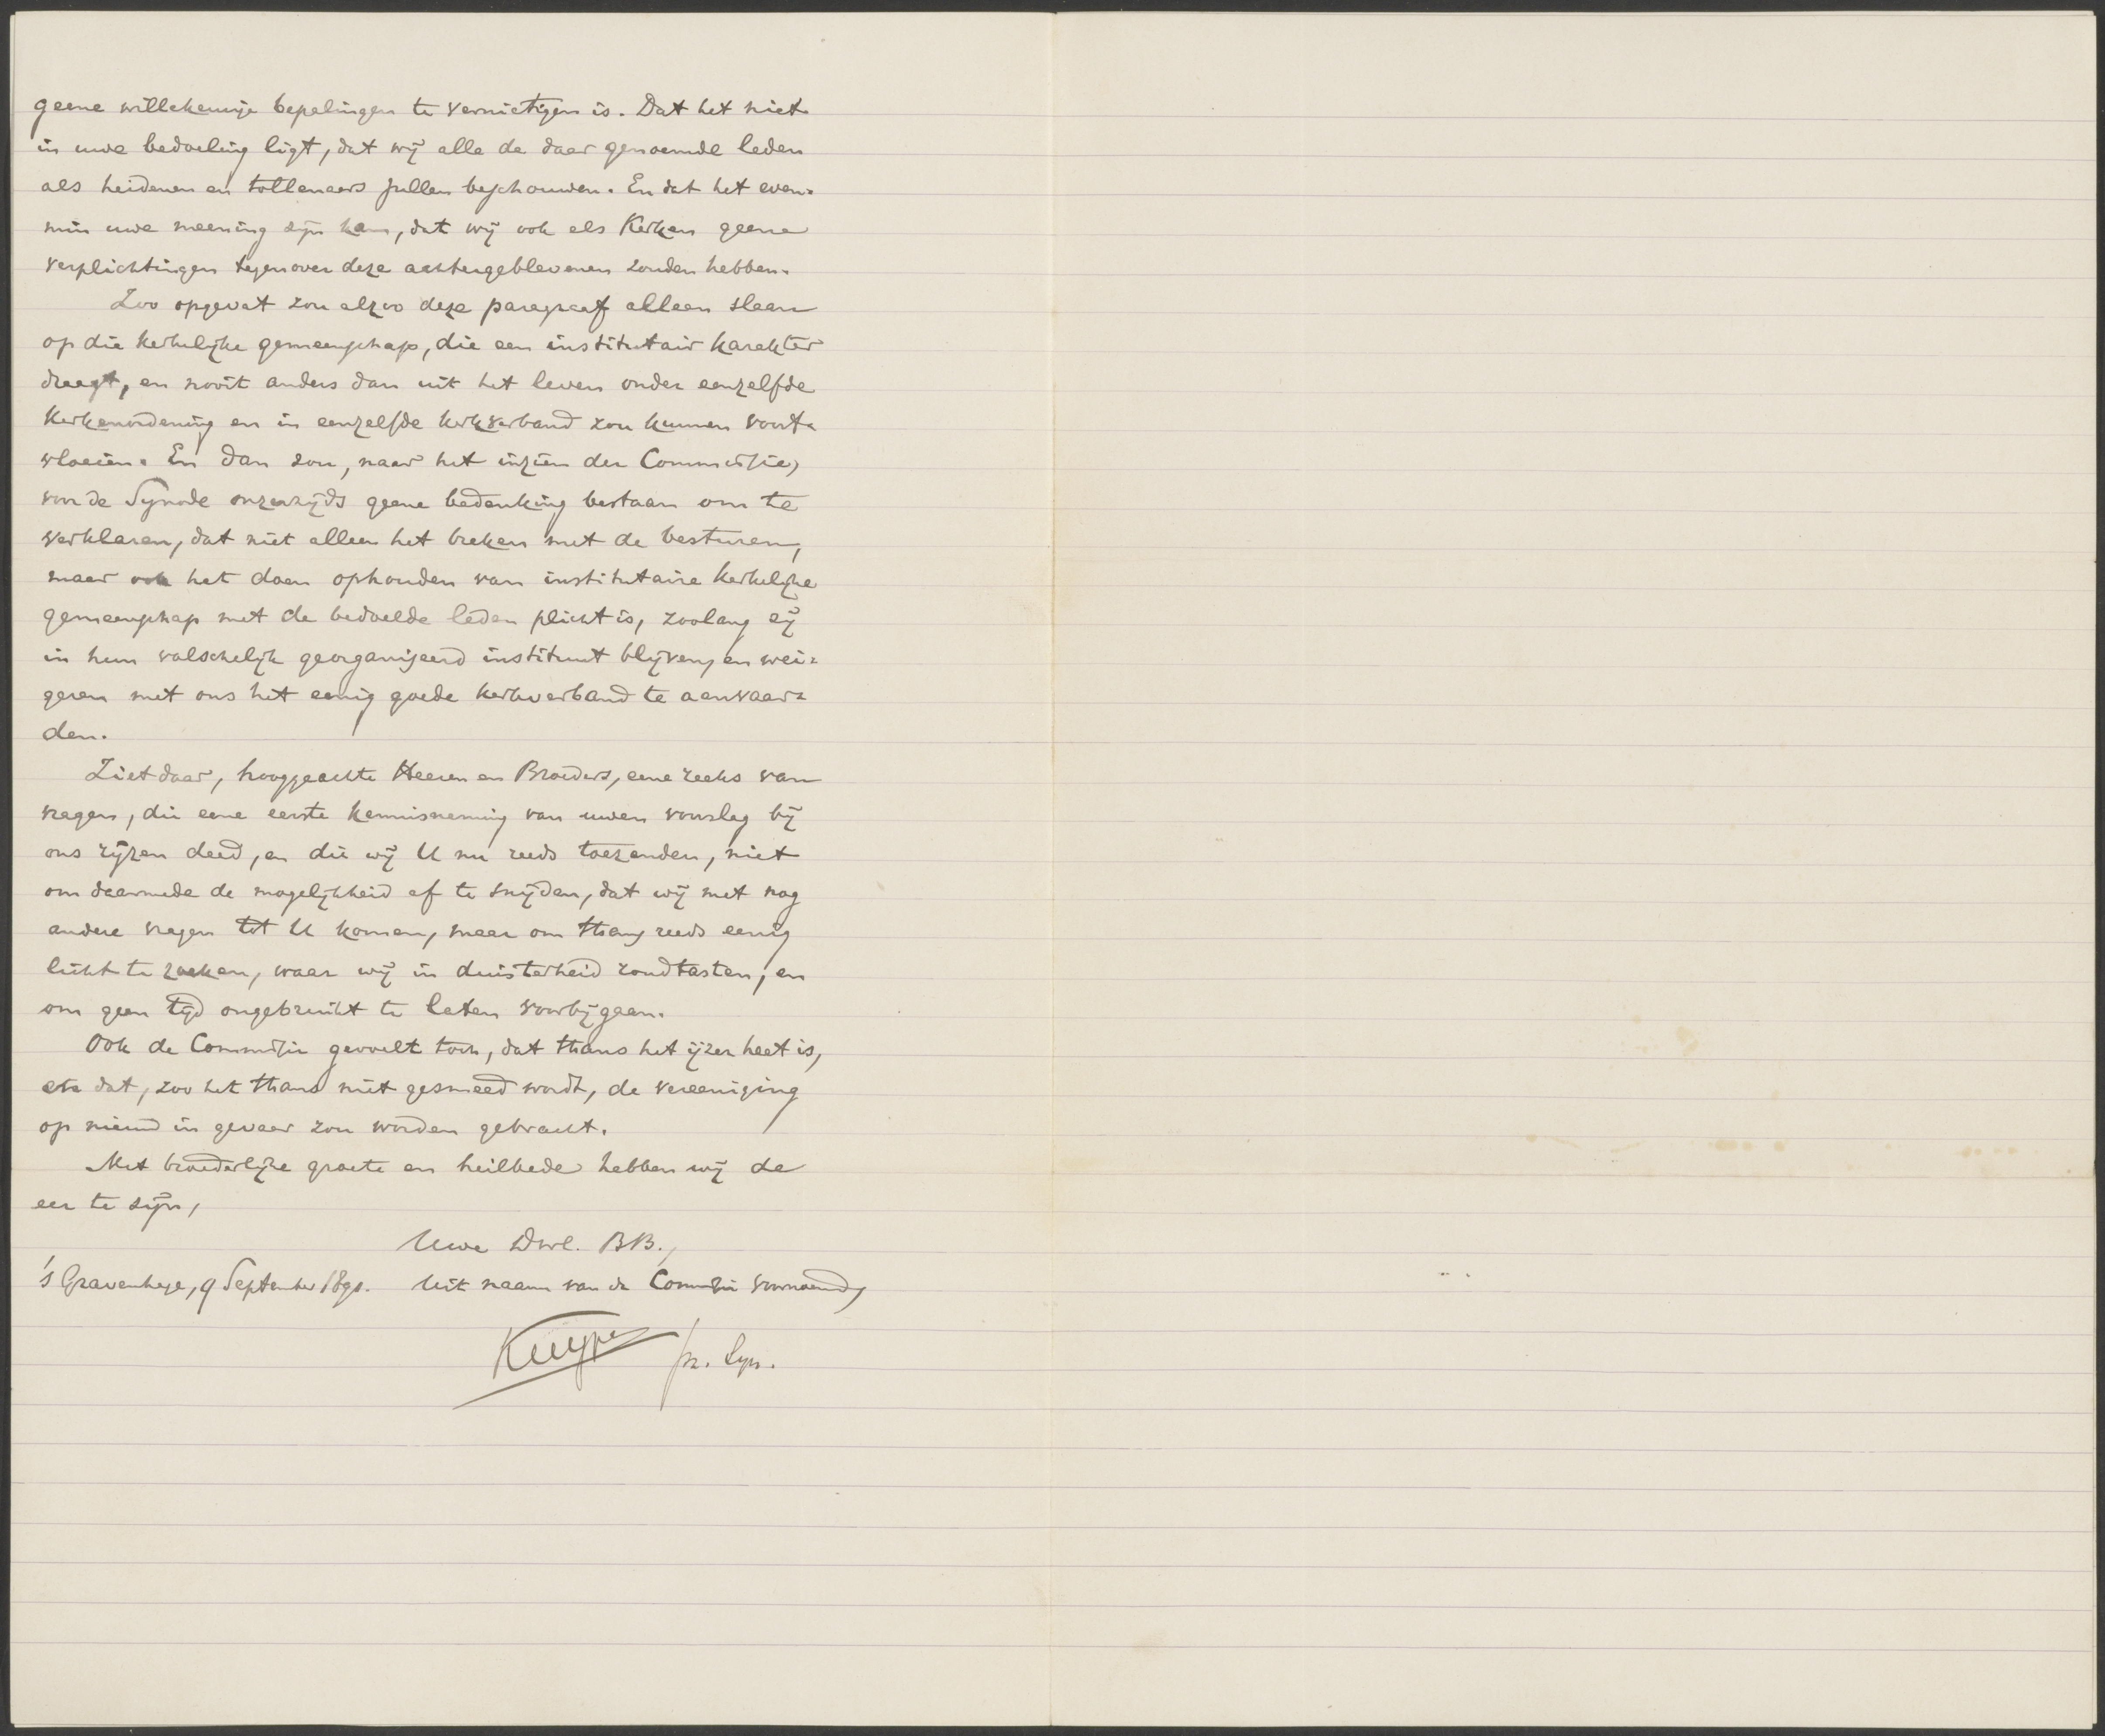 geene willekeurige bepalingen te vernietigen is. Dat het niet
in uwe bedoeling ligt, dat wij alle de daar genoemde leden
als heidenen en tollenaers zullen beschouwen. En dat het even=
min uwe meening zijn kan, dat wij ook als Kerken geene
verplichtingen tegenover deze achtergeblevenen zouden hebben.
Zoo opgevat zou alzoo deze paragraaf alleen slaan
op die kerkelijke gemeenschap, die een institutair karakter
draagt, en nooit anders dan uit het leven onder eenzelfde
Kerkenordening en in eenzelfde kerkverband zou kunnen voort=
vloeien. En dan zou, naar het inzien der Commissie,
voor de Synode onzerzijds geene bedenking bestaan om te
verklaren, dat niet alleen het breken met de besturen,
maar ook het doen ophouden van institutaire kerkelijke
gemeenschap met de bedoelde leden plicht is, zoolang zij
in hun valschelijk georganiseerd instituut blijven, en wei=
geren met ons het eenig goede kerkverband te aanvaar=
den.
Ziet daar, hooggeachte Heeren en Broeders, eene reeks van
vragen, die eene eerste kennisneming van uwen voorslag bij
ons rijzen deed, en die wij U nu reeds toezenden, niet
om daarmede de mogelijkheid af te snijden, dat wij met nog
andere vragen tot U komen, maar om thans reeds eenig
licht te zoeken, waar wij in duisterheid rondtasten, en
om geen tijd ongebruikt te laten voorbijgaan.
Ook de Commissie gevoelt toch, dat thans het ijzer heet is,
en dat, zoo het thans niet gesmeed wordt, de vereeniging
op nieuw in gevaar zou worden gebracht.
Met broederlijke groete en heilbede hebben wij de
eer te zijn,
Uwe Dwl. BB.,
's Gravenhage, 9 September 1890. Uit naam van de Commissie voornoemd,
Kuyper pr. Syn.